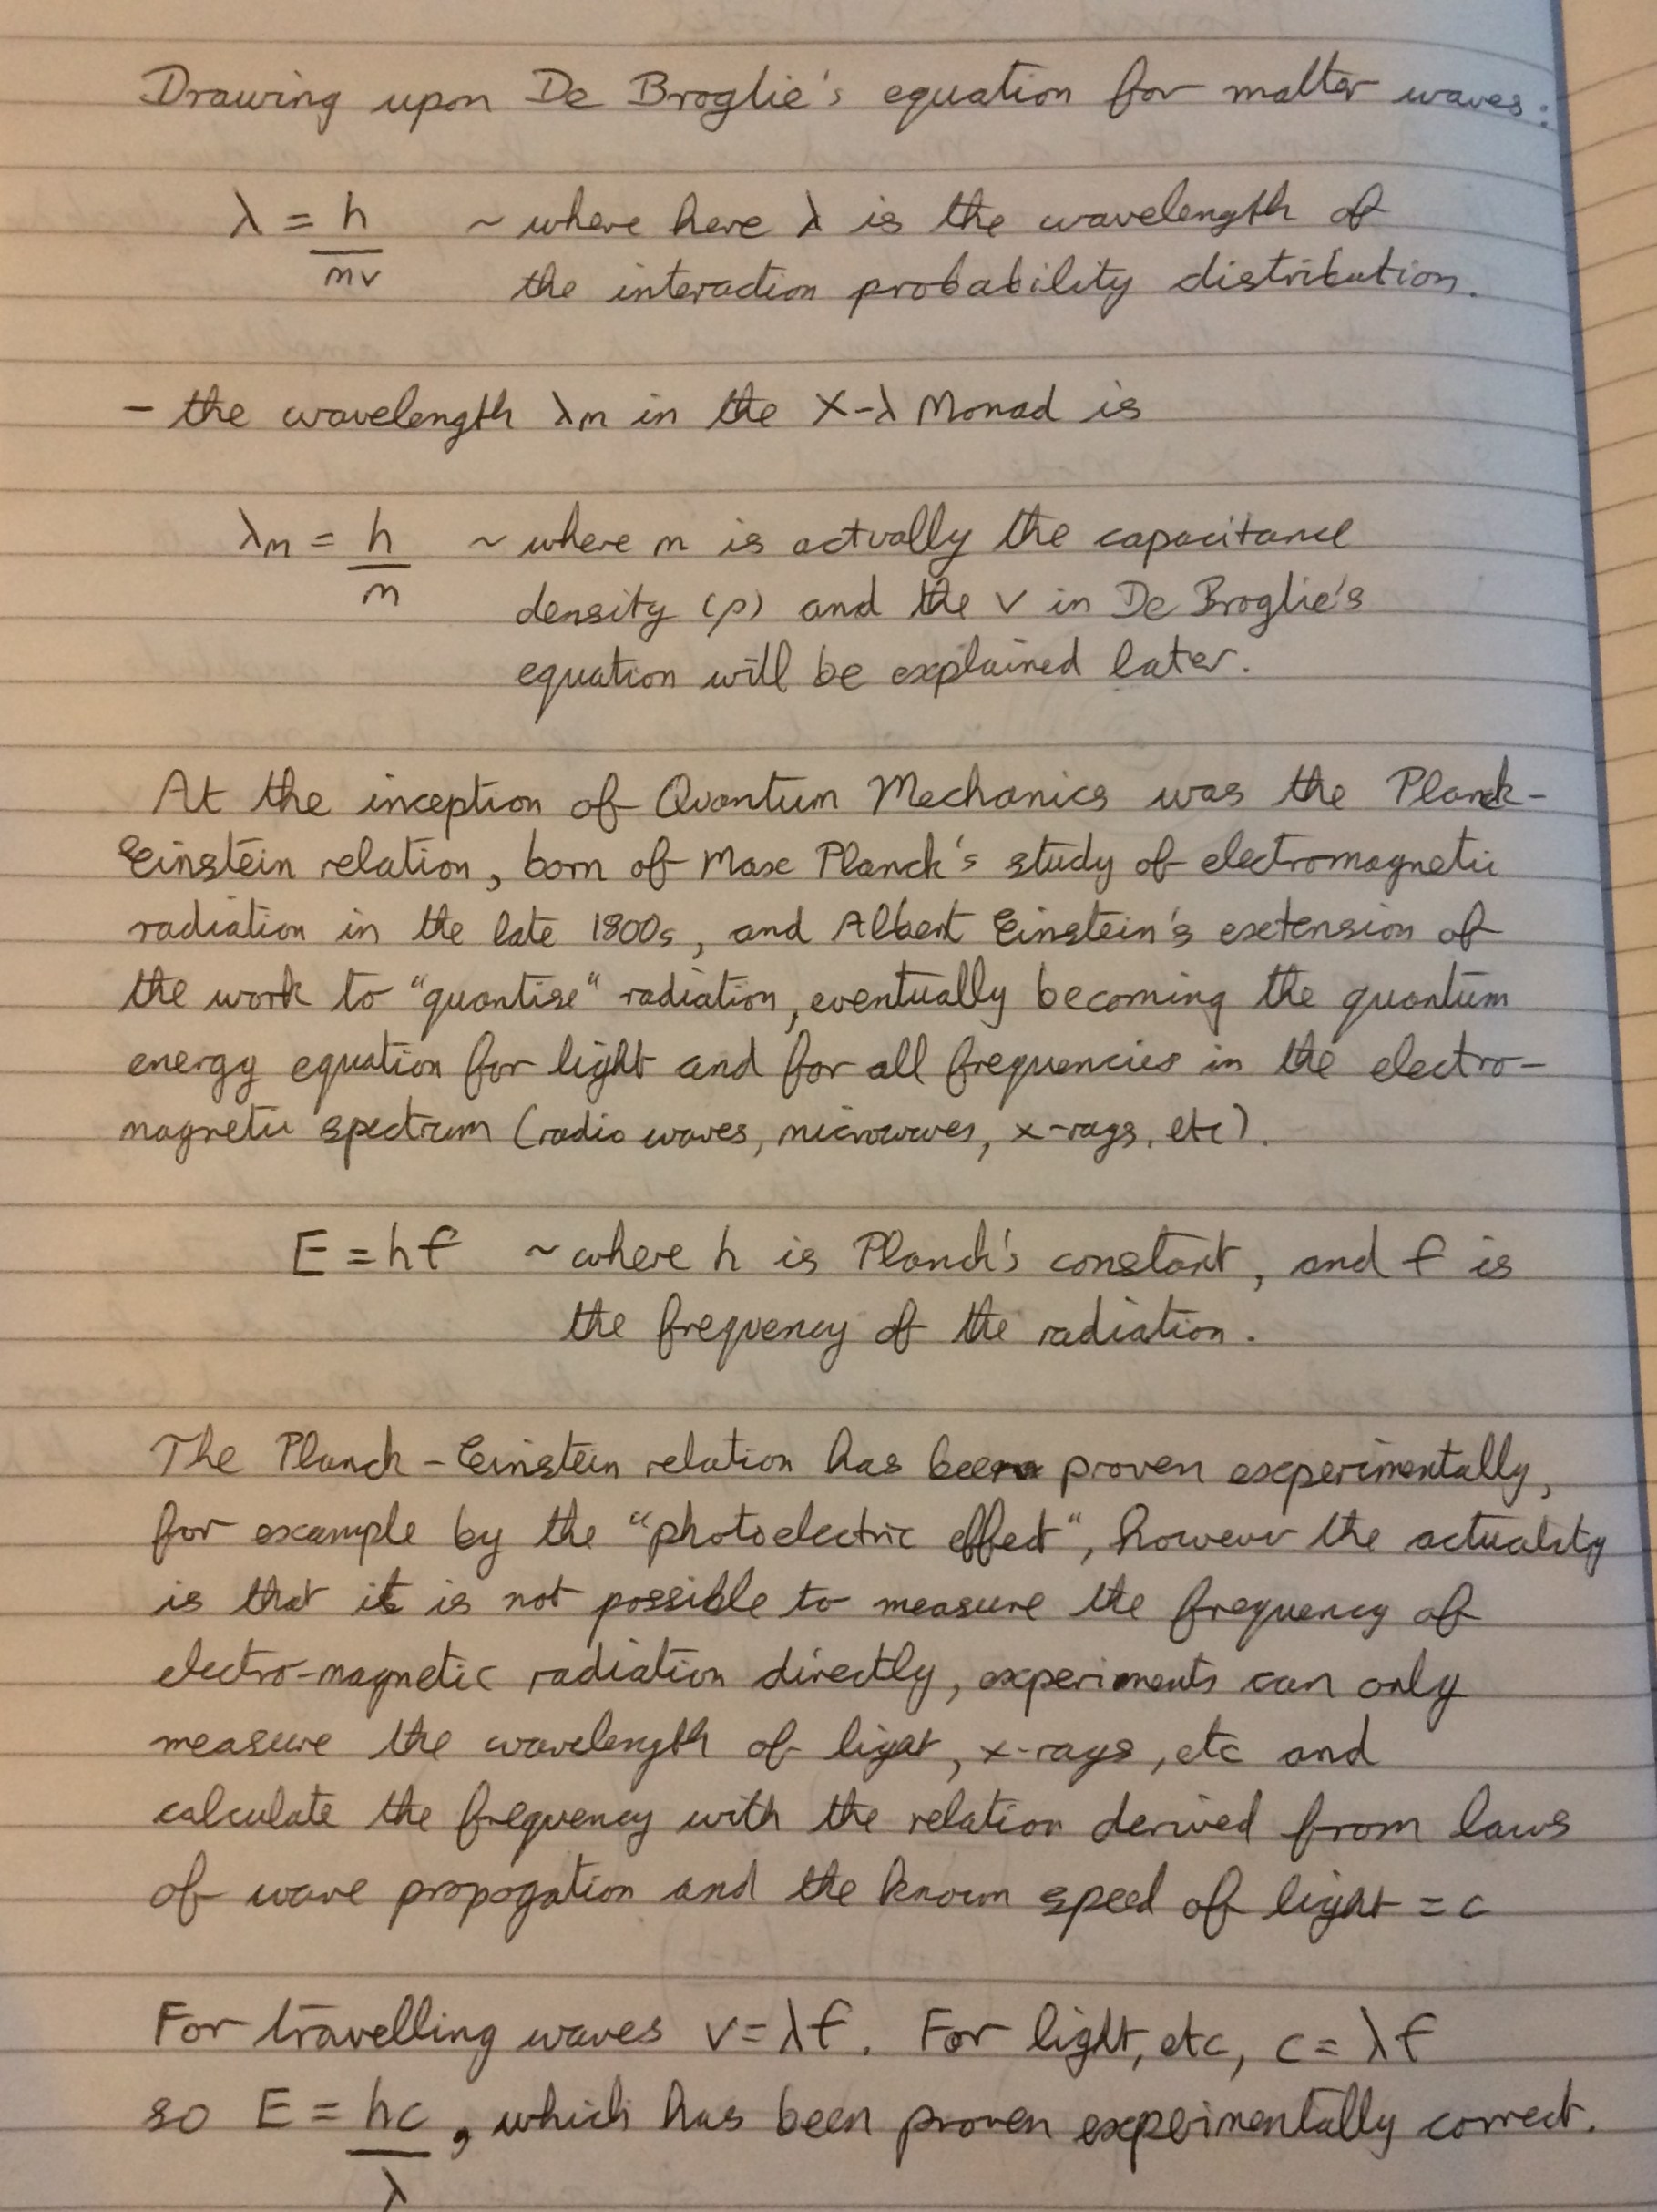 Drawing upon De Broglie's equation for matter waves:
λ = h/mv ~ where here λ is the wavelength of
the interaction probability distribution.
- the wavelength λm in the X-λ Monad is
λm = h/m ~ where m is actually the capacitance
density (ρ) and the v in De Broglie's
equation will be explained later.
At the inception of Quantum Mechanics was the Planck-
Einstein relation, born of Max Planck's study of electromagnetic
radiation in the late 1800s, and Albert Einstein's extension of
the work to "quantise" radiation, eventually becoming the quantum
energy equation for light and for all frequencies in the electro-
magnetic spectrum (radio waves, microwaves, x-rays, etc).
E = hf ~ where h is Planck's constant, and f is
the frequency of the radiation.
The Planck-Einstein relation has been proven experimentally,
for example by the "photoelectric effect", however the actuality
is that it is not possible to measure the frequency of
electro-magnetic radiation directly, experiments can only
measure the wavelength of light, x-rays, etc and
calculate the frequency with the relation derived from laws
of wave propogation and the known speed of light = c
For travelling waves v = λf. For light, etc, c = λf
so E = hc/λ, which has been proven experimentally correct.